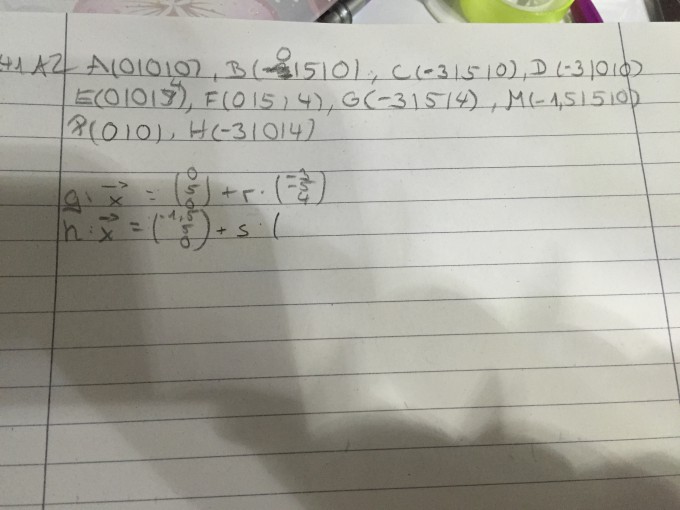 41 A2 A(0|0|0), B(0|5|0), C(-3|5|0), D(-3|0|0)
E(0|0|4), F(0|5|4), G(-3|5|4), M(-1,5|5|0)
(0|0), H(-3|0|4)
g: x⃗ = (0 5 0) + r · (-3 -5 4)
h: x⃗ = (-1,5 5 0) + s · (